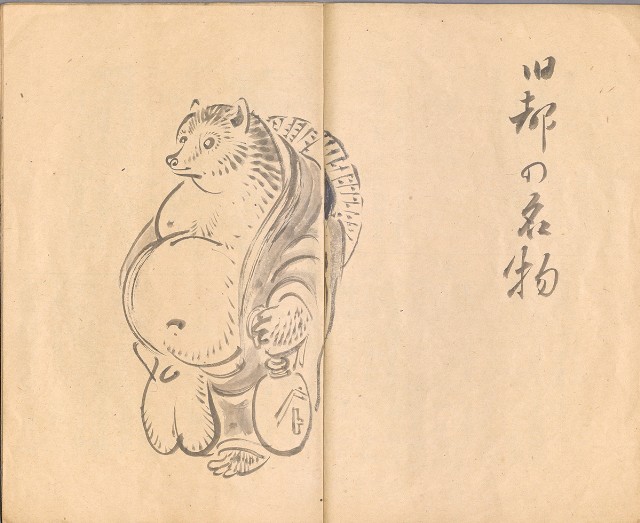 旧都の名物